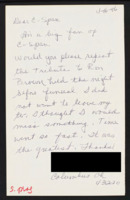 Dear C-Span
Am a big fan of
C-Span.
Would you please repeat
the tribute to Ron
Brown held the night
before funeral. I did
not want to leave my
for I thought I would
miss something. Time
went so fast. It was
the greatest. Thanks!
Columbus